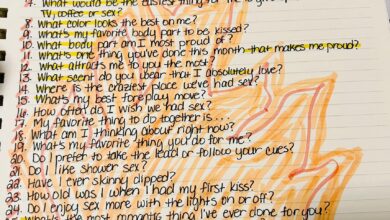 7. What would be the easiest thing for me to give up:
TV, coffee or sex?
8. What color looks the best on me?
9. What's my favorite body part to be kissed?
10. What body part am I most proud of?
11. What's one thing you've done this month that makes me proud?
12. What attracts me to you the most?
13. What scent do you wear that I absolutely love?
14. Where is the craziest place we've had sex?
15. What's my best foreplay move?
16. How often do I wish we had sex?
17. My favorite thing to do together is...
18. What am I thinking about right now?
19. What's my favorite thing you do for me?
20. Do I prefer to take the lead or follow your cues?
21. Do I like shower sex?
22. Have I ever skinny dipped?
23. How old was I when I had my first kiss?
24. Do I enjoy sex more with the lights on or off?
What's the most romantic thing I've ever done for you?